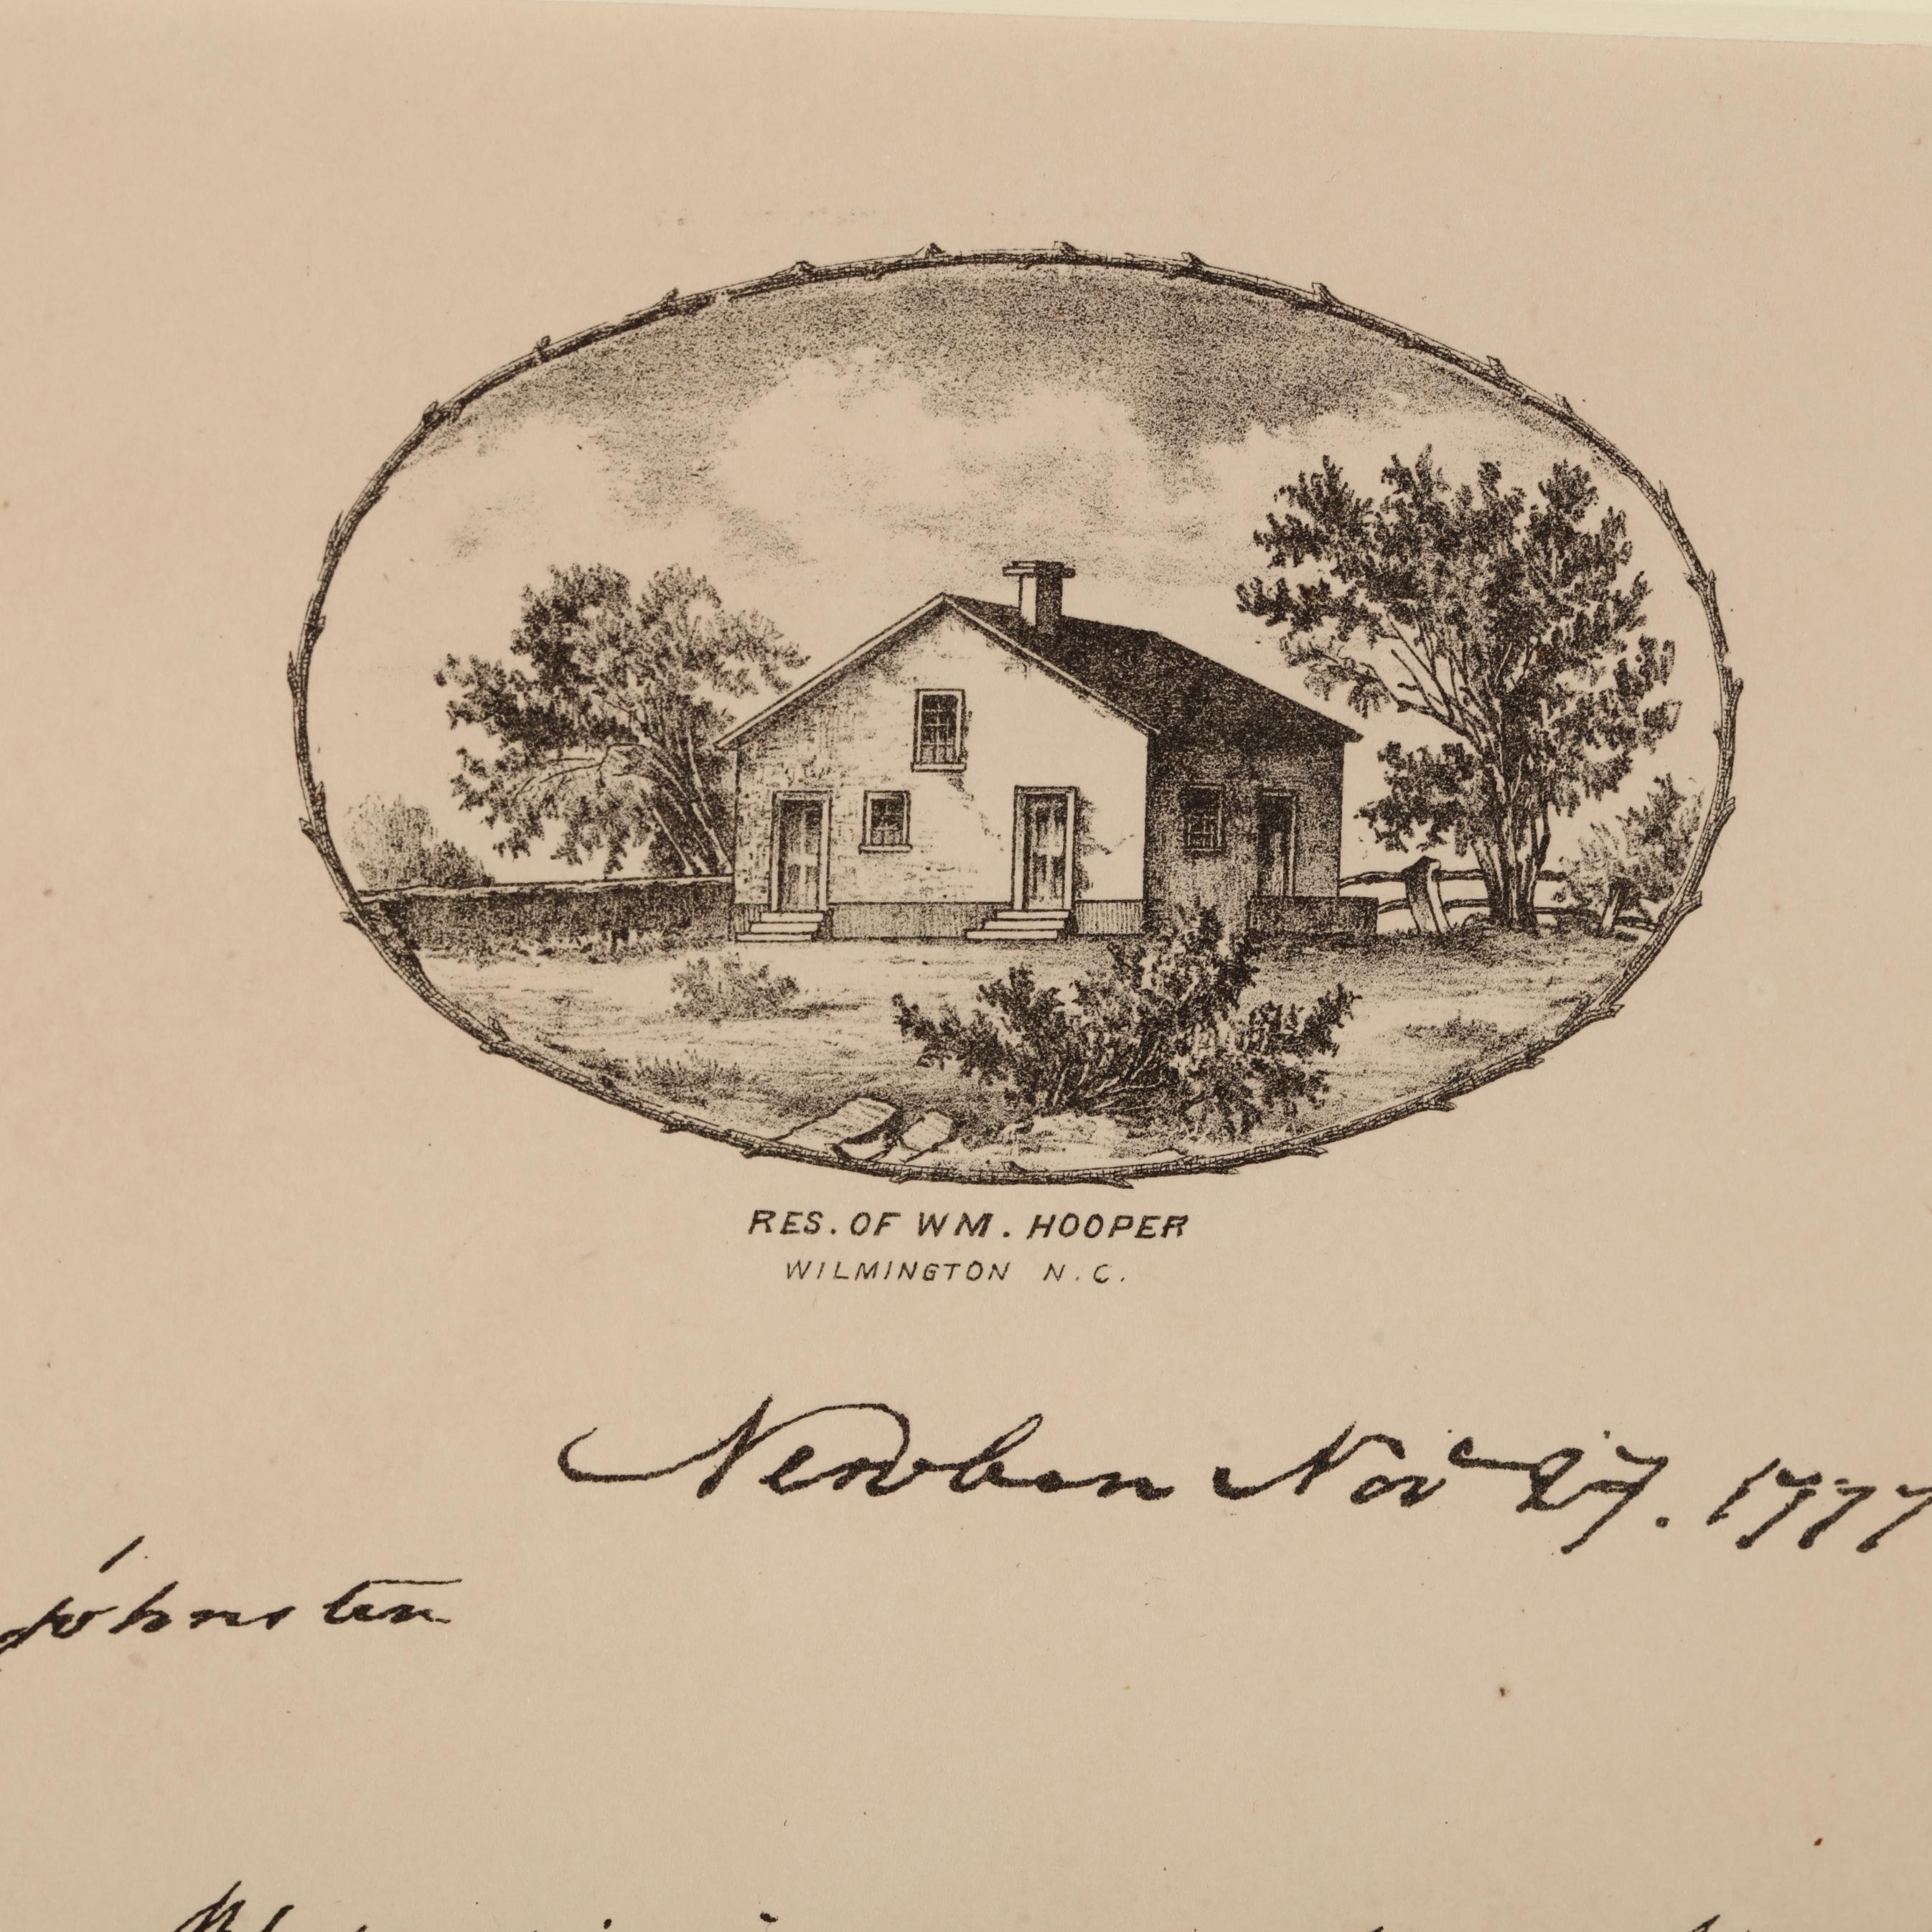 RES. OF WM. HOOPER
WILMINGTON N. C.
Newbern Novr 27. 1777
Johnston